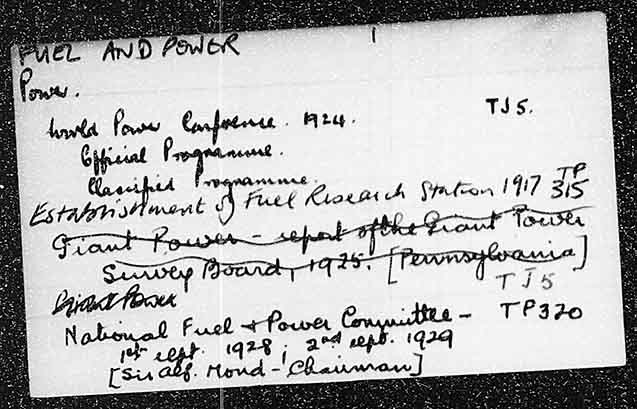 FUEL AND POWER 1
Power.
World Power Conference. 1924. TJ5.
Official Programme.
Classified Programme.
Establishment of Fuel Research Station 1917 TP 315
Giant Power - report of the Giant Power
Survey Board, 1925. [Pennsylvania]
TJ5
Giant Power
National Fuel & Power Committee - TP320
1st rept. 1928; 2nd rept. 1929
[Sir Alf. Mond - Chairman]